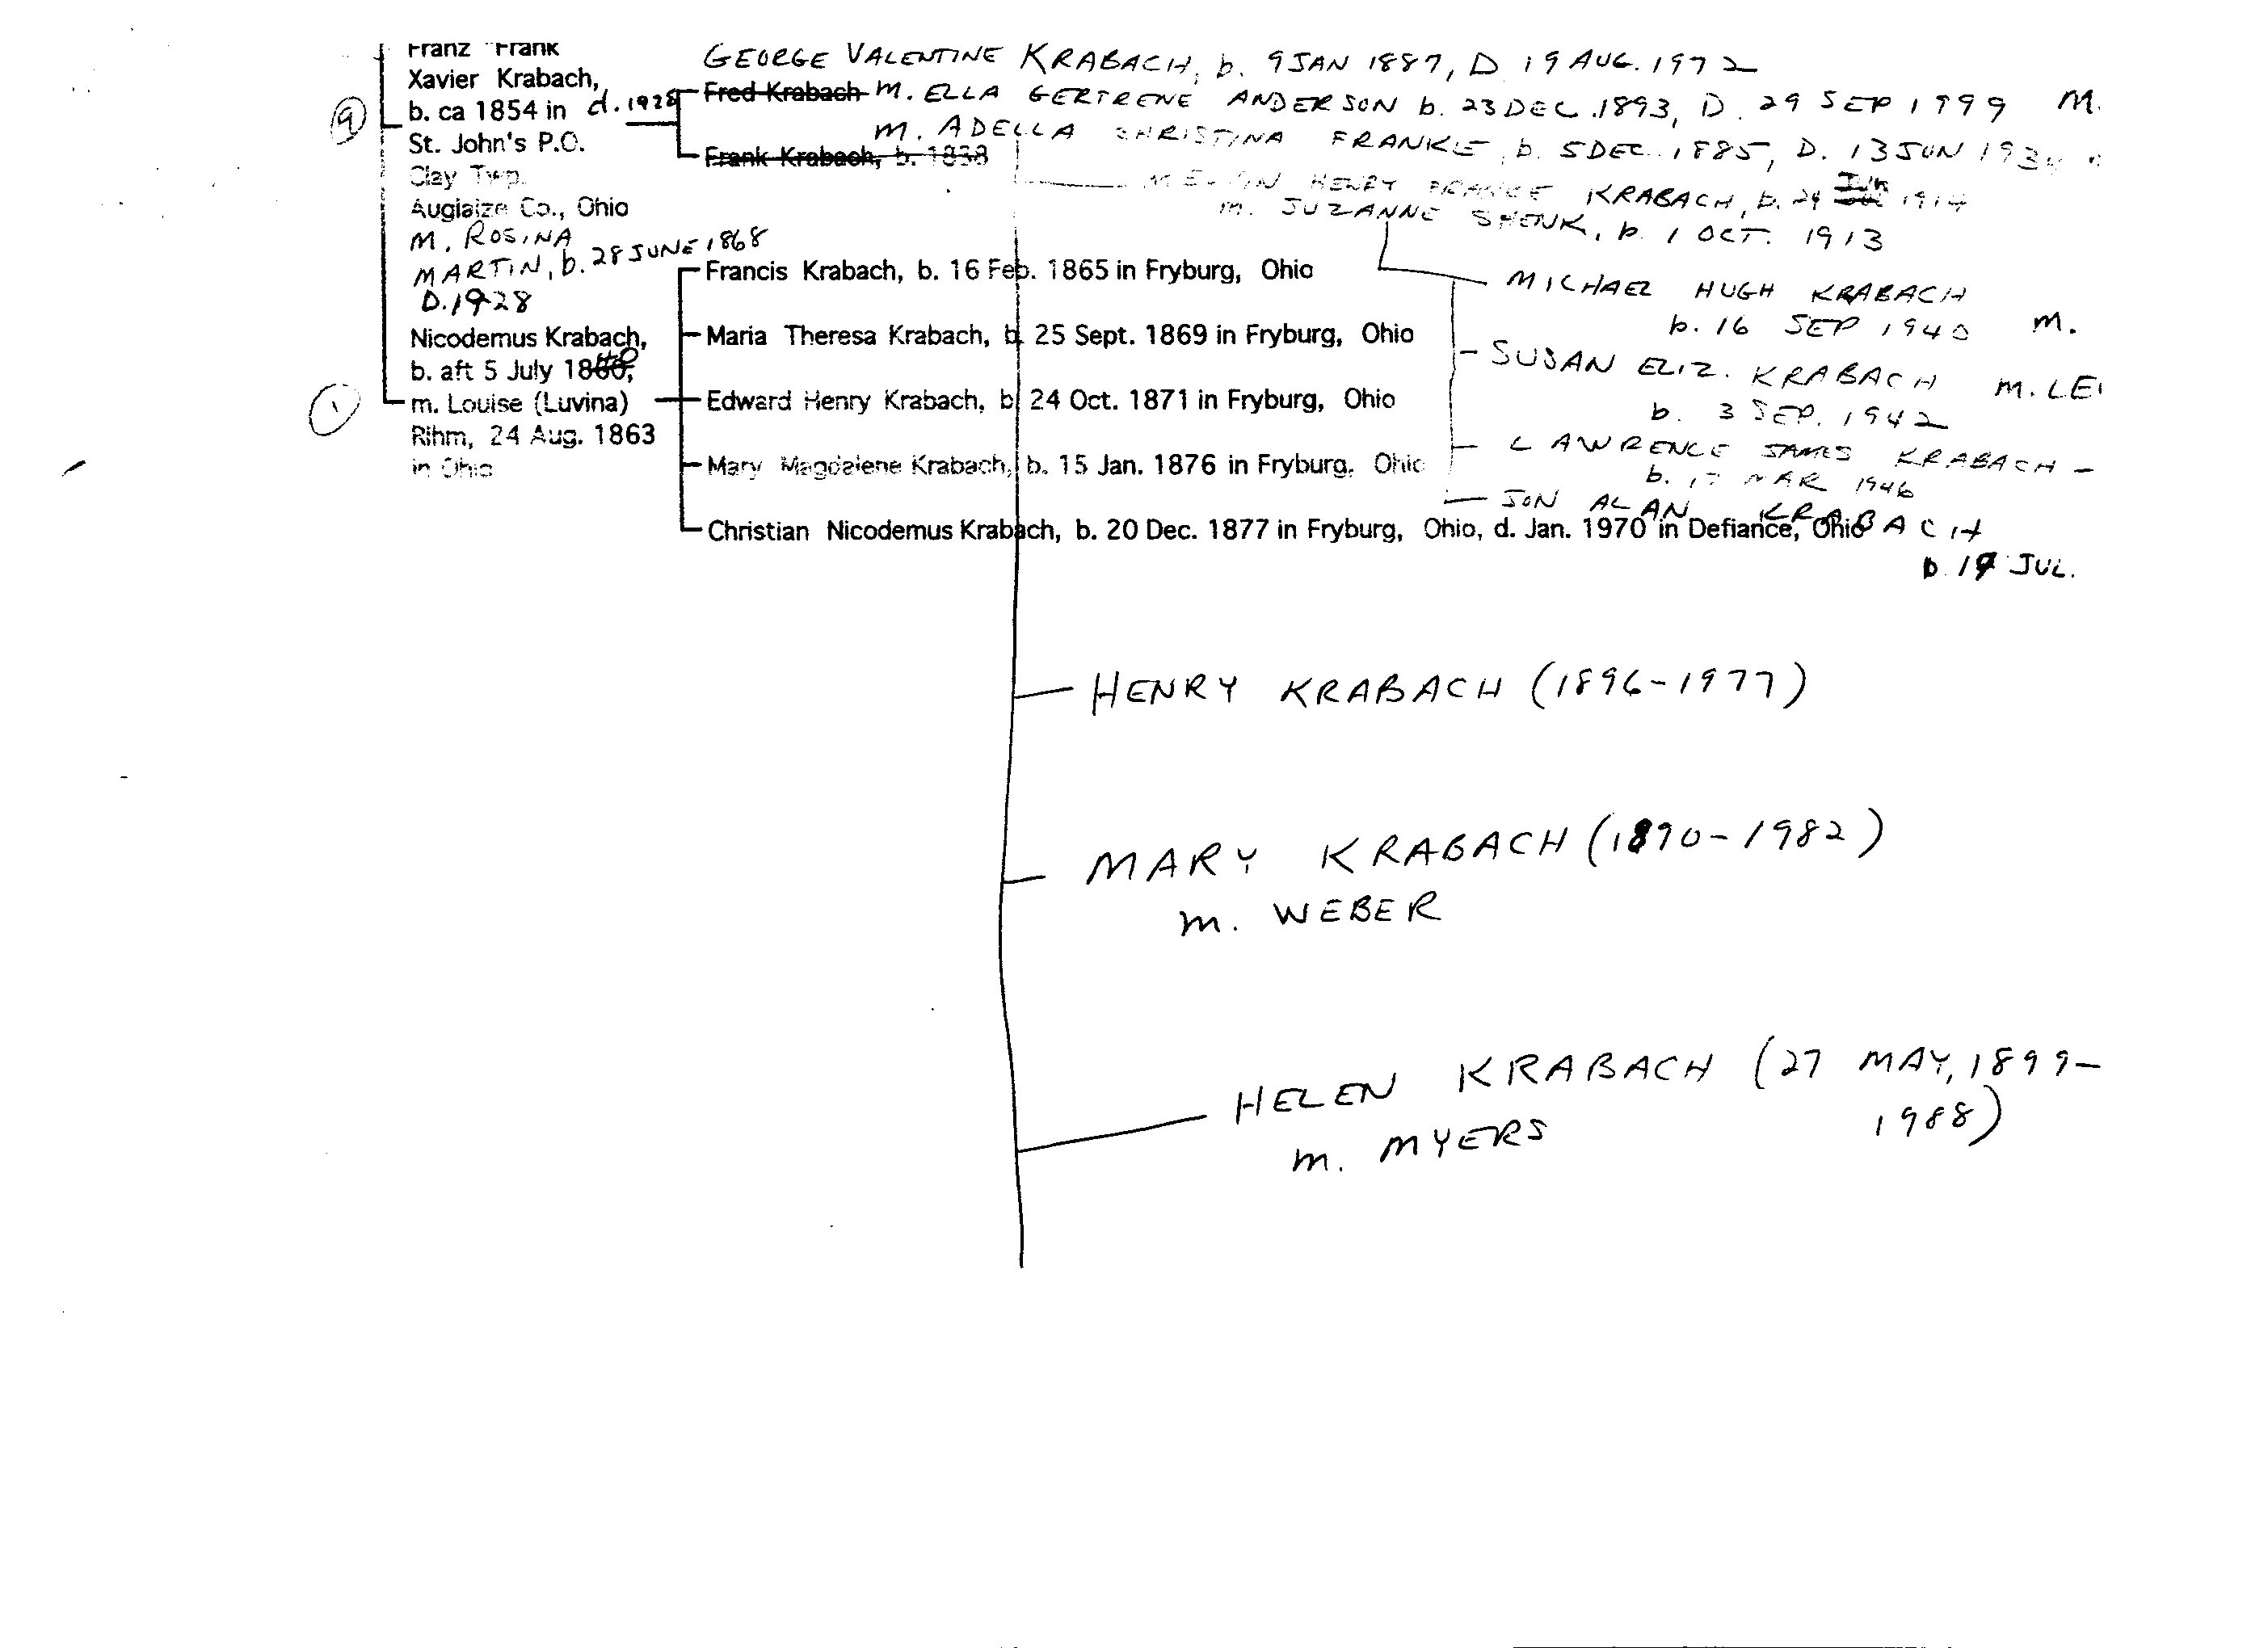 Franz "Frank
Xavier Krabach,
b. ca 1854 in d. 1928
St. John's P.O.
Clay Twp.
Auglaize Co., Ohio
M. ROSINA
MARTIN, b. 28 JUNE 1868
D. 1928
9
GEORGE VALENTINE KRABACH, b. 9 JAN 1887, D 19 AUG. 1972
Fred Krabach M. ELLA GERTRENE ANDERSON b. 23 DEC. 1893, D. 29 SEP 1999 M.
M. ADELLA CHRISTINA FRANKE, b. 5 DEC. 1885, D. 13 JUN
Frank Krabach, b. 1858
HENRY KRABACH, b. 29 JUN 1914
m. SUZANNE SHENK, b. 1 OCT. 1913
MICHAEL HUGH KRABACH
b. 16 SEP 1940 M.
SUSAN ELIZ. KRABACH M. LE
b. 3 SEP. 1942
LAWRENCE JAMES KRABACH -
b. MAR 1946
JON ALAN KRABACH
b. 19 JUL.
Nicodemus Krabach,
b. aft 5 July 1840,
m. Louise (Luvina)
Rihm, 24 Aug. 1863
in Ohio
1
Francis Krabach, b. 16 Feb. 1865 in Fryburg, Ohio
Maria Theresa Krabach, b. 25 Sept. 1869 in Fryburg, Ohio
Edward Henry Krabach, b. 24 Oct. 1871 in Fryburg, Ohio
Mary Magdalene Krabach, b. 15 Jan. 1876 in Fryburg, Ohio
Christian Nicodemus Krabach, b. 20 Dec. 1877 in Fryburg, Ohio, d. Jan. 1970 in Defiance, Ohio
HENRY KRABACH (1896-1977)
MARY KRABACH (1890-1982)
m. WEBER
HELEN KRABACH (27 MAY, 1899-
1988)
m. MYERS